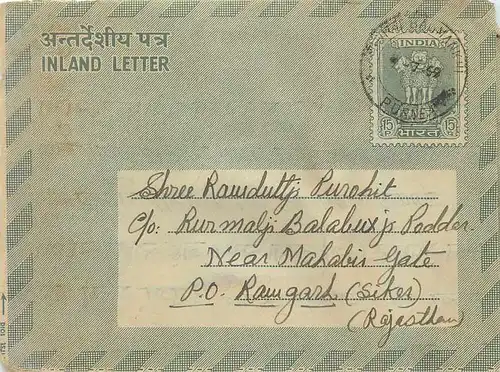 अन्तर्देशीय पत्र
INLAND LETTER
INDIA
15 P
15 P
भारत
Shree Ramduttji Purohit
C/o: Purmalji Balabuxji Poddar.
Near Mahabir Gate
P.O. Ramgarh (Siker)
(Rajasthan)